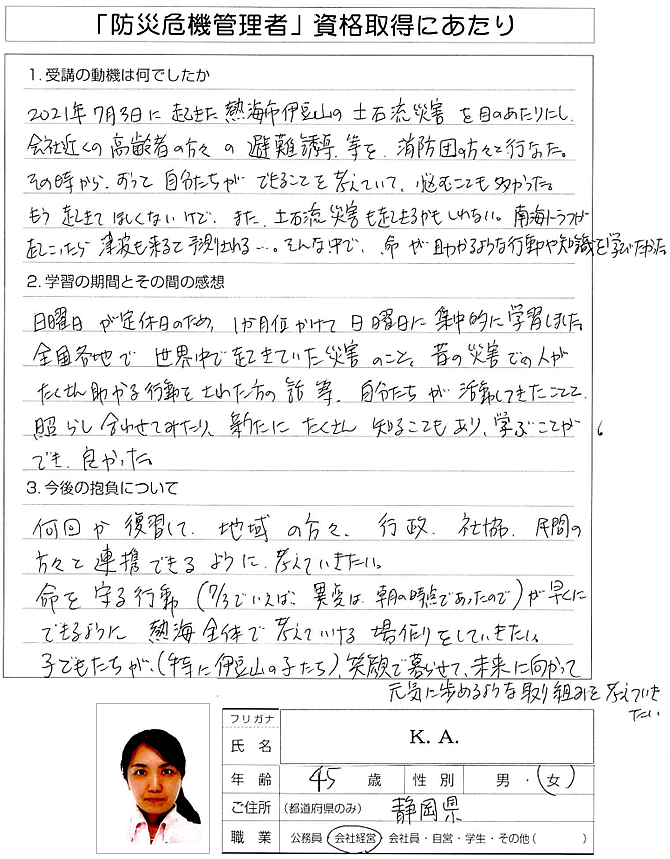 「防災危機管理者」資格取得にあたり
1.受講の動機は何でしたか
2021年7月3日に起きた熱海市伊豆山の土石流災害を目のあたりにし、
会社近くの高齢者の方々の避難誘導、等を、消防団の方々と行なった。
その時から、ずっと自分たちができることを考えていて、悩むことも多かった。
もう起きてほしくないけど、また、土石流災害も起きるかもしれない。南海トラフが
起こったら津波も来ると予測される…。そんな中で、命が助かるような行動や知識を学びたかった
2.学習の期間とその間の感想
日曜日が定休日のため、1か月位かけて日曜日に集中的に学習しました。
全国各地で世界中で起きていた災害のこと、昔の災害での人が
たくさん助かる行動をとれた方の話等、自分たちが活動してきたことと、
照らし合わせてみたり、新たにたくさん知ることもあり、学ぶことが
でき、良かった。
3.今後の抱負について
何回か復習して、地域の方々、行政、社協、民間の
方々と連携できるように、考えていきたい。
命を守る行動(7/3でいえば、異変は、朝の時点であったので)が早くに
できるように熱海全体で考えていける場作りをしていきたい。
子どもたちが、(特に伊豆山の子たち)、笑顔で暮らせて、未来に向かって
元気に歩めるような取り組みを考えていき
たい
フリガナ
氏名 K. A.
年齢 45 歳 性別 男・女
ご住所 (都道府県のみ) 静岡県
職業 公務員・会社経営・会社員・自営・学生・その他( )